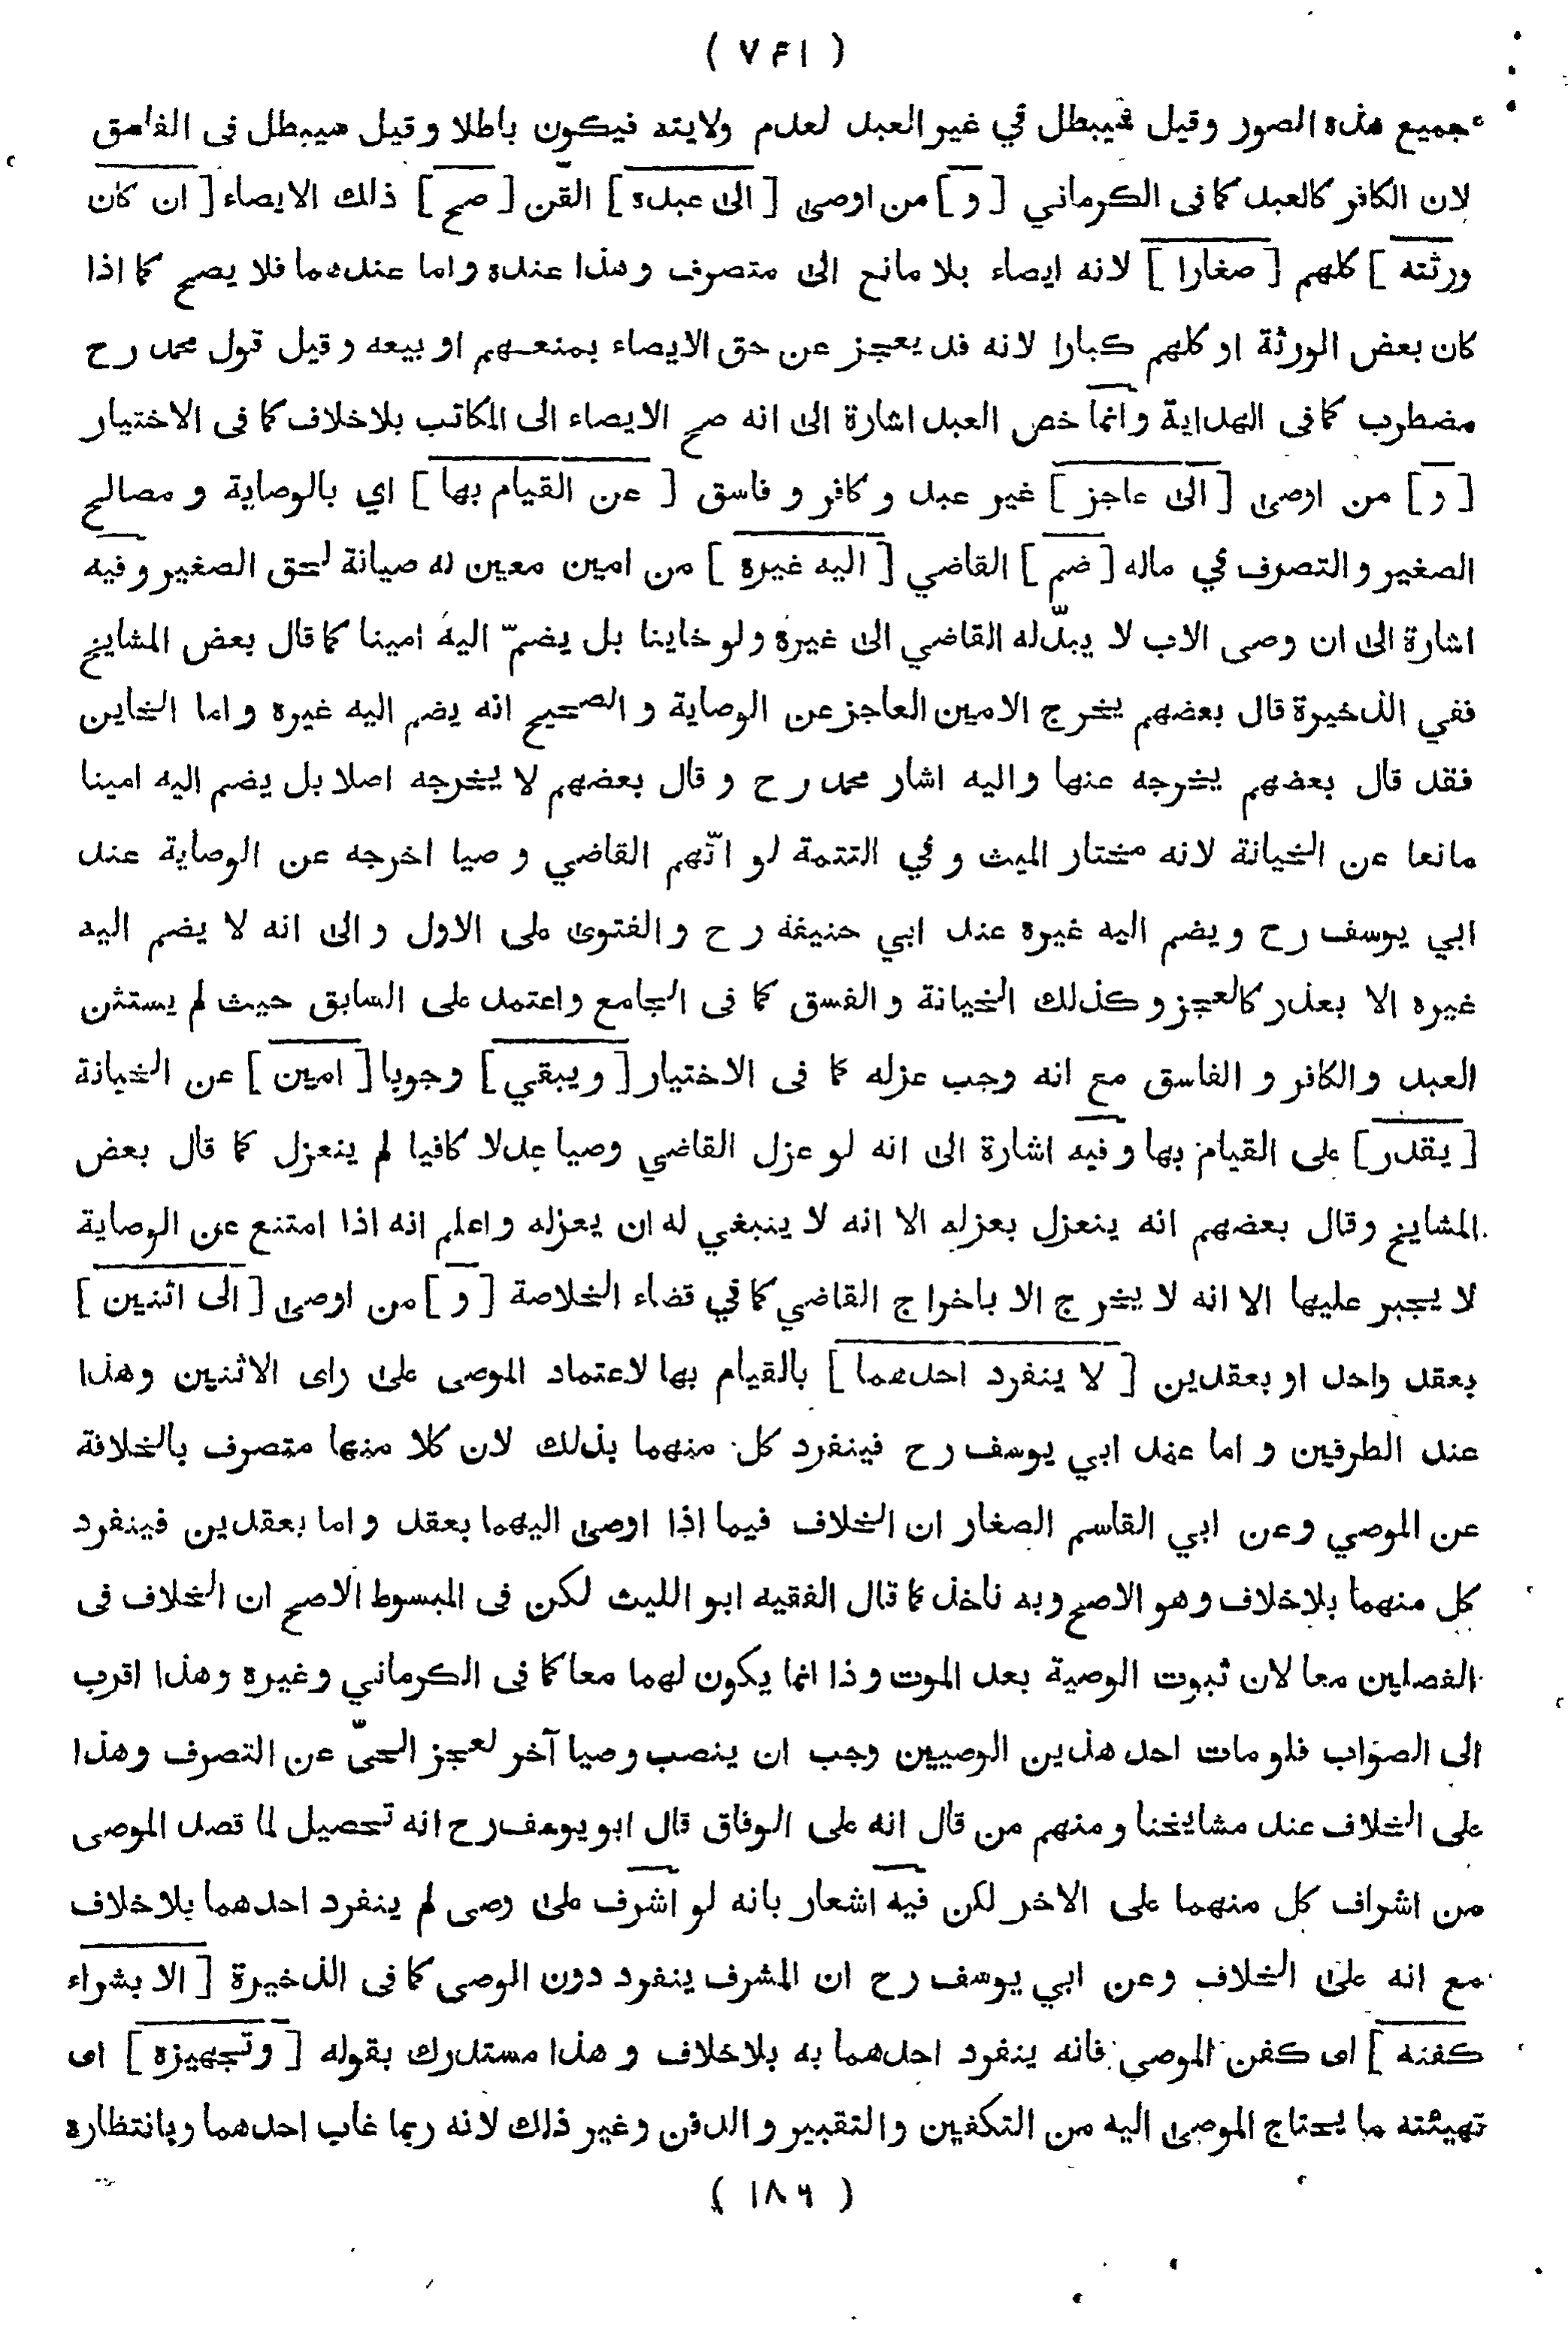 ( ٧٤١ )
جميع هذه الصور وقيل فيبطل في غير العبد لعدم ولايته فيكون باطلا وقيل سيبطل فى الفاسق
لان الكافر كالعبد كما فى الكرماني [ و ] من اوصى [ الى عبده ] القن [ صح ] ذلك الايصاء [ ان كان
ورثته ] كلهم [ صغارا ] لانه ايصاء بلا مانع الى متصرف وهذا عنده واما عندهما فلا يصح كما اذا
كان بعض الورثة او كلهم كبارا لانه قد يعجز عن حق الايصاء بمنعهم او بيعه وقيل قول محمد رح
مضطرب كما فى الهداية وانما خص العبد اشارة الى انه صح الايصاء الى المكاتب بلاخلاف كما فى الاختيار
[ و ] من اوصى [ الى عاجز ] غير عبد و كافر و فاسق [ عن القيام بها ] اي بالوصاية و مصالح
الصغير والتصرف في ماله [ ضم ] القاضي [ اليه غيره ] من امين معين له صيانة لحق الصغير وفيه
اشارة الى ان وصى الاب لا يبدّله القاضي الى غيره ولو خاينا بل يضمّ اليه امينا كما قال بعض المشايخ
ففي الذخيرة قال بعضهم يخرج الامين العاجز عن الوصاية و الصحيح انه يضم اليه غيره واما الخاين
فقد قال بعضهم يخرجه عنها واليه اشار محمد رح و قال بعضهم لا يخرجه اصلا بل يضم اليه امينا
مانعا عن الخيانة لانه مختار الميت و في التتمة لو اتّهم القاضي وصيا اخرجه عن الوصاية عند
ابي يوسف رح ويضم اليه غيره عند ابي حنيفة رح والفتوى على الاول والى انه لا يضم اليه
غيره الا بعذر كالعجز و كذلك الخيانة و الفسق كما فى الجامع واعتمد على السابق حيث لم يستثن
العبد والكافر و الفاسق مع انه وجب عزله كما فى الاختيار [ ويبقي ] وجوبا [ امين ] عن الخيانة
[ يقدر ] على القيام بها وفيه اشارة الى انه لو عزل القاضي وصيا عدلا كافيا لم ينعزل كما قال بعض
المشايخ وقال بعضهم انه ينعزل بعزله الا انه لا ينبغي له ان يعزله واعلم انه اذا امتنع عن الوصاية
لا يجبر عليها الا انه لا يخرج الا باخراج القاضي كما في قضاء الخلاصة [ و ] من اوصى [ الى اثنين ]
بعقد واحد او بعقدين [ لا ينفرد احدهما ] بالقيام بها لاعتماد الموصى على راى الاثنين وهذا
عند الطرفين و اما عند ابي يوسف رح فينفرد كل منهما بذلك لان كلا منها متصرف بالخلافة
عن الموصي وعن ابي القاسم الصغار ان الخلاف فيما اذا اوصى اليهما بعقد و اما بعقدين فينفرد
كل منهما بلاخلاف وهو الاصح وبه ناخذ كما قال الفقيه ابو الليث لكن فى المبسوط الاصح ان الخلاف فى
الفصلين معا لان ثبوت الوصية بعد الموت وذا انما يكون لهما معا كما فى الكرماني وغيره وهذا اقرب
الى الصواب فلو مات احد هذين الوصيين وجب ان ينصب وصيا آخر لعجز الحىّ عن التصرف وهذا
على الخلاف عند مشايخنا ومنهم من قال انه على الوفاق قال ابو يوسف رح انه تحصيل لما قصد الموصى
من اشراف كل منهما على الاخر لكن فيه اشعار بانه لو اشرف على وصى لم ينفرد احدهما بلاخلاف
مع انه على الخلاف وعن ابي يوسف رح ان المشرف ينفرد دون الوصى كما فى الذخيرة [ الا بشراء
كفنه ] اى كفن الموصي فانه ينفرد احدهما به بلاخلاف و هذا مستدرك بقوله [ وتجهيزه ] اى
تهيئته ما يحتاج الموصى اليه من التكفين والتقبير والدفن وغير ذلك لانه ربما غاب احدهما وبانتظاره
( ١٨٦ )